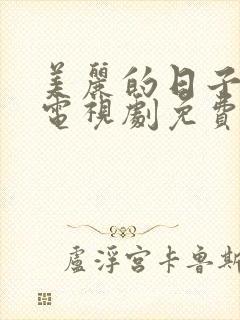 美麗的日子
電視劇免費
盧浮宮卡魯斯